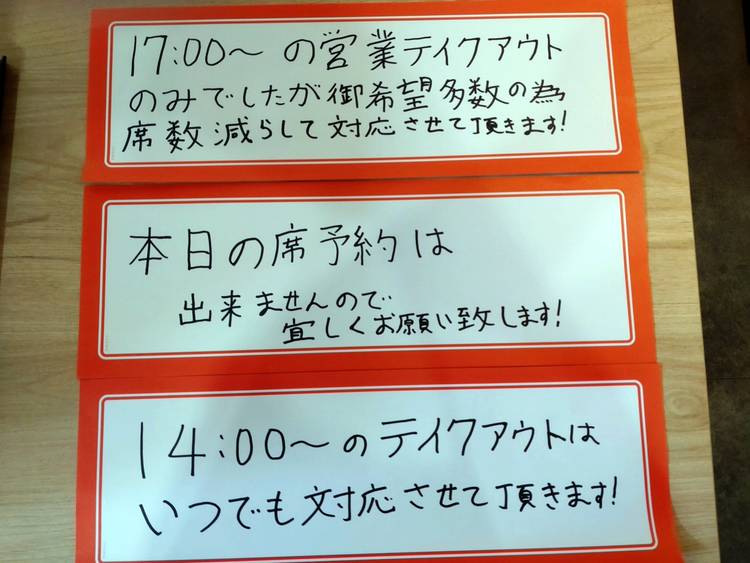 17:00〜の営業テイクアウト
のみでしたが御希望多数の為
席数減らして対応させて頂きます!
本日の席予約は
出来ませんので
宜しくお願い致します!
14:00〜のテイクアウトは
いつでも対応させて頂きます!